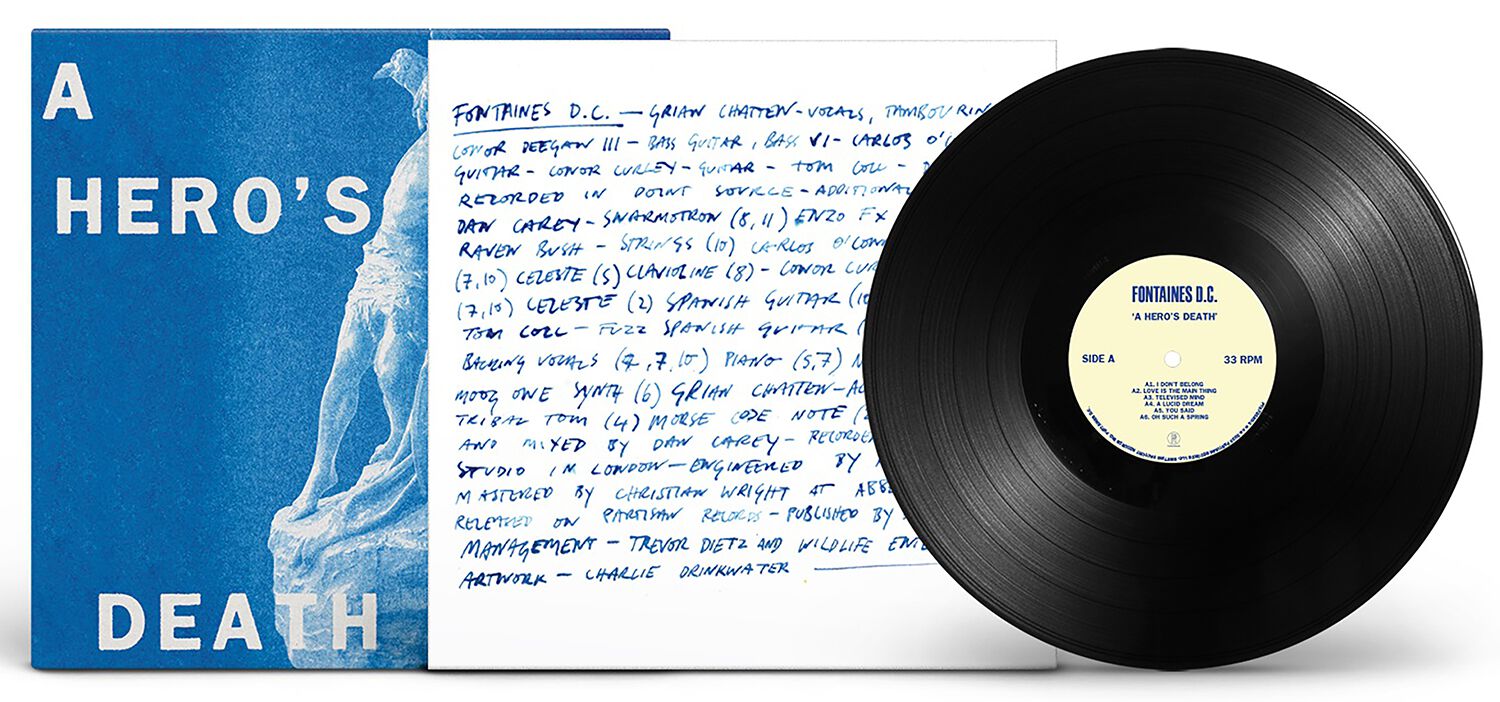 A
HERO'S
DEATH
FONTAINES D.C. — GRIAN CHATTEN - VOCALS, TAMBOURIN
CONOR DEEGAN III - BASS GUITAR, BASS VI - CARLOS O'C
GUITAR - CONOR CURLEY - GUITAR - TOM COLL -
RECORDED IN POINT SOURCE - ADDITIONAL
DAN CAREY - SWARMOTRON (8,11) ENZO FX
RAVEN BUSH - STRINGS (10) CARLOS O'CONN
(7,10) CELESTE (5) CLAVIOLINE (8) - CONOR CUR
(7,10) CELESTE (2) SPANISH GUITAR (10
TOM COLL - FUZZ SPANISH GUITAR (
BACKING VOCALS (2,7,10) PIANO (5,7)
MOOG ONE SYNTH (6) GRIAN CHATTEN - AC
TRIBAL TOM (4) MORSE CODE NOTE (
AND MIXED BY DAN CAREY - RECORDE
STUDIO IN LONDON - ENGINEERED BY
MASTERED BY CHRISTIAN WRIGHT AT ABB
RELEASED ON PARTISAN RECORDS - PUBLISHED BY
MANAGEMENT - TREVOR DIETZ AND WILDLIFE ENTE
ARTWORK - CHARLIE DRINKWATER
FONTAINES D.C.
'A HERO'S DEATH'
SIDE A 33 RPM
A1. I DON'T BELONG
A2. LOVE IS THE MAIN THING
A3. TELEVISED MIND
A4. A LUCID DREAM
A5. YOU SAID
A6. OH SUCH A SPRING